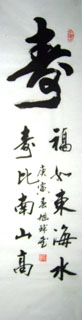 壽
福如東海水
壽比南山高
庚寅